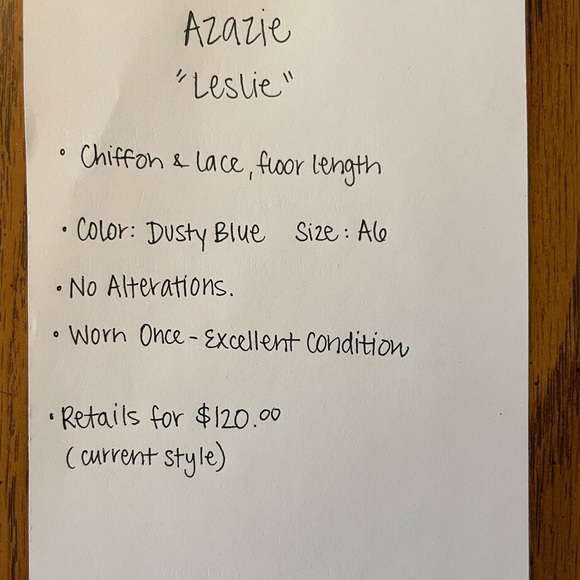 Azazie
"Leslie"
• Chiffon & lace, floor length
• Color: Dusty Blue Size: A6
• No Alterations.
• Worn Once - Excellent Condition
• Retails for $120.00
(current style)